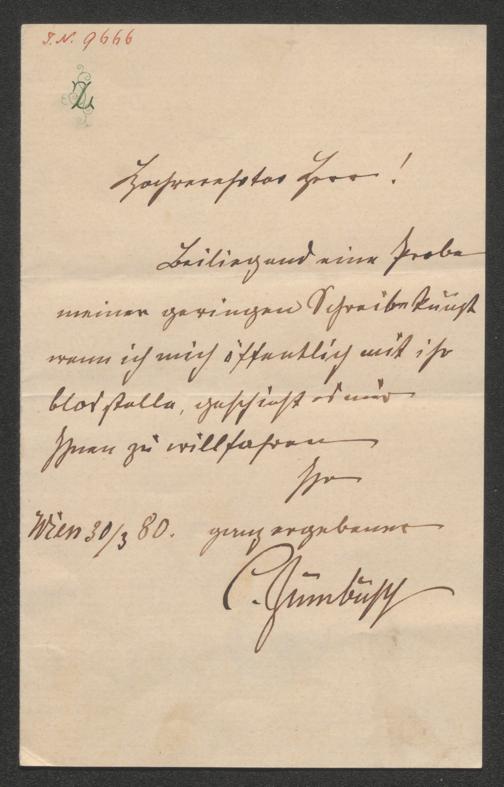 I.N. 9666
Z
Hochverehrter Herr!
Beiliegend eine Probe
meiner geringen Schreibekunst
wenn ich mich öffentlich mit ihr
blosstelle, geschieht es nur
Ihnen zu willfahren
Ihr
Wien 30/3 80. ganz ergebener
C. Zumbusch